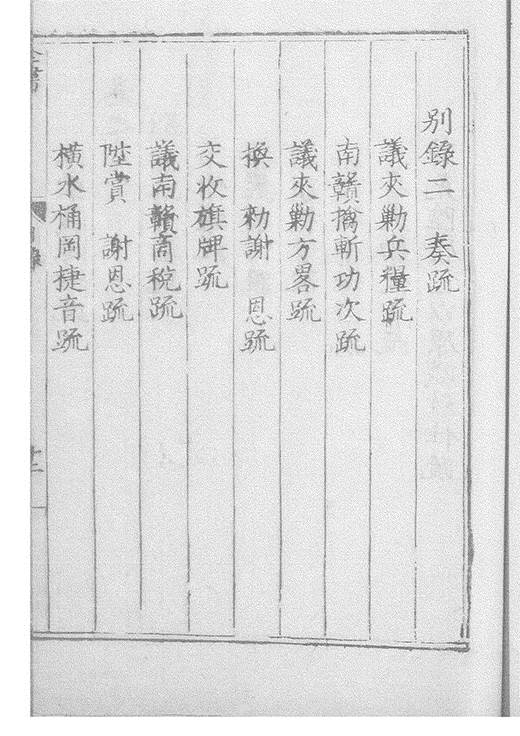 別錄二　奏疏
議夾勦兵糧疏
南贛擒斬功次疏
議夾勦方畧疏
換　勑謝　恩疏
交收旗牌疏
議南贛商稅疏
陞賞　謝恩疏
橫水桶岡捷音疏
全書
目錄
十二